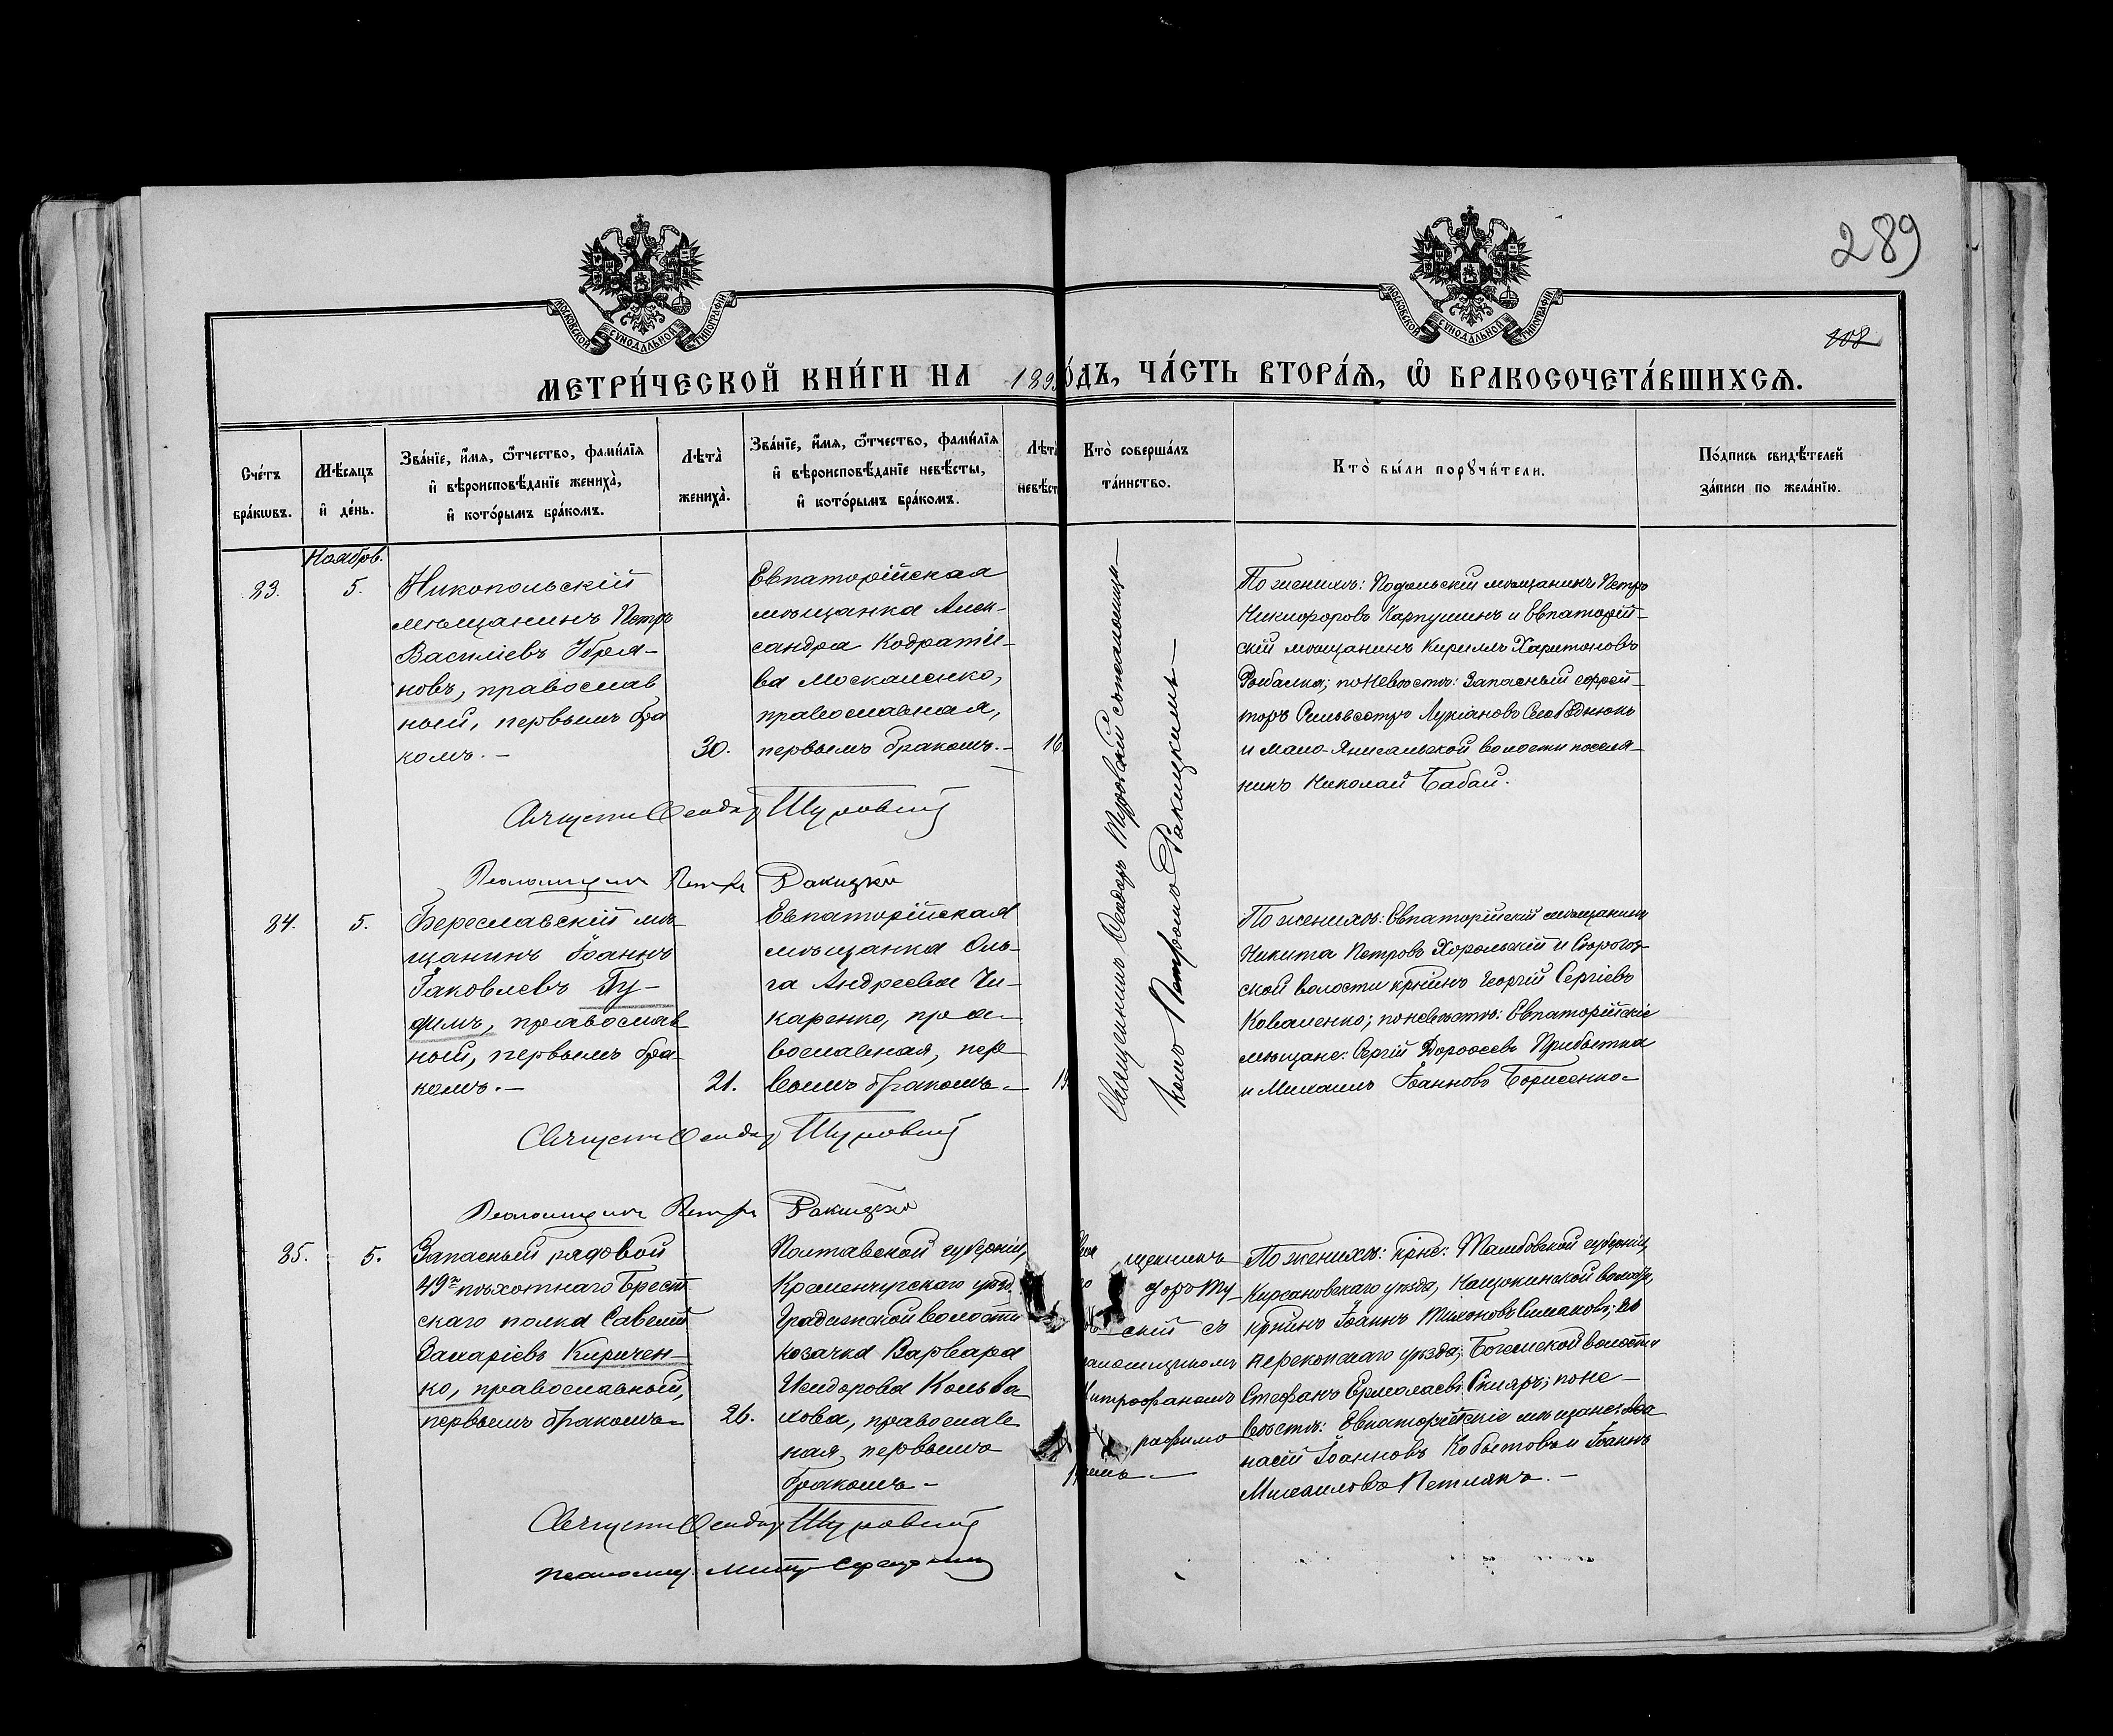 289
108
МОСКОВСКОЙ СѴНОДАЛЬНОЙ ТИПОГРАФІИ
МОСКОВСКОЙ СѴНОДАЛЬНОЙ ТИПОГРАФІИ
МЕТРИ́ЧЕСКОЙ КНИ́ГИ НА 189 ОДЪ, ЧА́СТЬ ВТОРА́Ѧ, Ѽ БРАКОСОЧЕТА́ВШИХСѦ.
Сче́тъ бра́кωвъ.
Мѣ́сѧцъ и҆ де́нь.
Зва́нїе, и҆́мѧ, ѻ҆́тчество, фами́лїѧ и҆ вѣроисповѣ́данїе жениха̀, и҆ кото́рымъ бра́комъ.
Лѣта̀ жениха̀.
Зва́нїе, и҆́мѧ, ѻ҆́тчество, фами́лїѧ и҆ вѣроисповѣ́данїе невѣ́сты, и҆ кото́рымъ бра́комъ.
Лѣта̀ невѣст
Кто̀ соверша́лъ та́инство.
Кто̀ бы́ли порꙋчи́тели.
По́дпись свидѣ́телей за́писи по жела́нїю.
Ноябрь.
23.
5.
Никопольскій
мѣщанинъ Петръ
Василіевъ Убря-
новъ, православ
ный, первымъ бра
комъ. –
30.
Евпаторійская
мѣщанка Алек-
сандра Кодратіе-
ва Москаленко,
православная,
первымъ бракомъ. –
16
Священникъ Ѳеодоръ Туровскій съ псаломщи-
комъ Петромъ Ракицкимъ –
По женихѣ: Подольскій мѣщанинъ Петръ
Никифоровъ Карпушинъ и Евпаторій-
скій мѣщанинъ Кириллъ Харитоновъ
Рыбалка; по невѣстѣ: Запасный ефрей-
торъ Сильвестръ Лукіановъ Слободнюкъ
и Мало-Янисальской волости поселя-
нинъ Николай Бабай.
Священникъ Ѳеодоръ Туровскій
Псаломщикъ Петръ Ракицкій
24.
5.
Береславскій мѣ-
щанинъ Іоаннъ
Іаковлевъ Гу-
димъ, православ
ный, первымъ бра
комъ. –
21.
Евпаторійская
мѣщанка Оль-
га Андреева Чи-
каренко, пра-
вославная, пер
вымъ бракомъ. –
19
По женихѣ: Евпаторійскій мѣщанинъ
Никита Петровъ Хорольскій и
ской волости крнинъ Георгій Сергіевъ
Коваленко; по невѣстѣ: Евпаторійскіе
мѣщане: Сергій Дороѳеевъ Прибытка
и Михаилъ Іоанновъ Борисенко –
Священникъ Ѳеодоръ Туровскій
Псаломщикъ Петръ Ракицкій
25.
5.
Запасный рядовой
49го пѣхотнаго Брест
скаго полка Савелій
Захаріевъ Киричен-
ко, православный,
первымъ бракомъ –
26.
Полтавской губерніи,
Кременчугскаго уѣзд.
Градижской волости
козачка Варвара
Исидорова
хова, православ
ная, первымъ
бракомъ –
щенникъ
доръ Ту-
скій съ
аломщикомъ
итрофаномъ
рафимо
По женихѣ: крне: Тамбовской губерніи,
Кирсановскаго уѣзда, Нащокинской волости,
крнинъ Іоаннъ Тихоновъ Симаковъ; и
перекопскаго уѣзда, Богемской волости
Стефанъ Ермолаевъ Скляръ; по не-
вѣстѣ: Евпаторійскіе мѣщане: Аѳа
насій Іоанновъ Кобытовъ и Іоаннъ
Михаиловъ Петлякъ. –
Священникъ Ѳеодоръ Туровскій